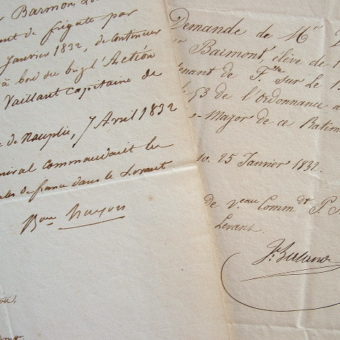 Barmon
nt de frégate par
Janvier 1832, de continuer
à bord du brig l'Actéon
Vaillant capitaine de
de Nauplie, 7 Avril 1832
ral commandant les
de france dans le Levant
Bon Hugon
Demande de Mr
Barmont, élève de
nant de F. Sur le B
§3 de l'ordonnance
Major de ce Batim
25 Janvier 1832.
de v.eau Comm.dt
Levant.